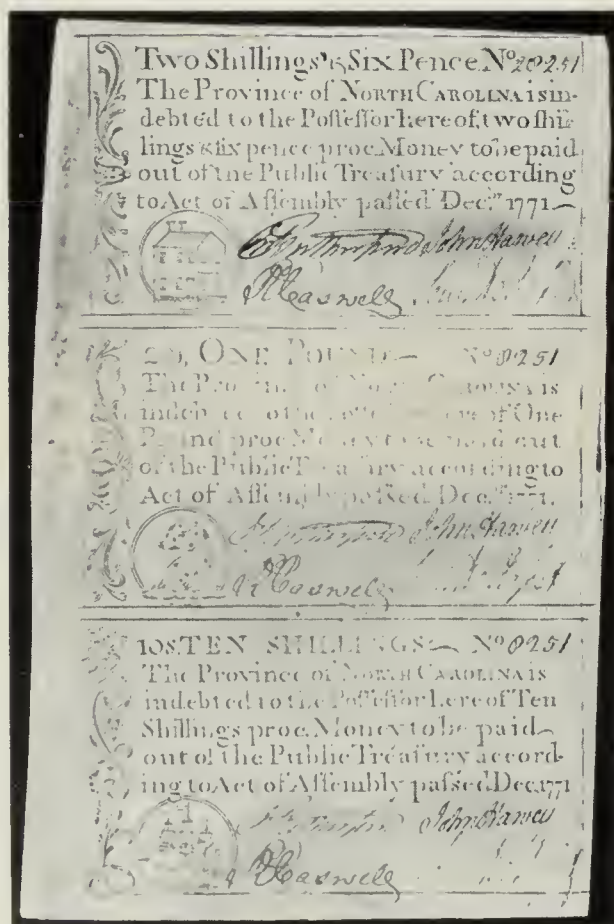 Two Shillings & Six Pence. No. 20251
The Province of NORTH CAROLINA is in-
debted to the Poſſeſſor hereof, two ſhil-
lings & ſix pence proc. Money to be paid
out of the Public Treaſury according
to Act of Aſſembly paſſed Decr. 1771
John Harvey
R Caswell
ONE POUND No. 8251
The Province of NORTH CAROLINA is
indebted to the here of One
Pound proc. Money to be paid out
of the Public Treaſury according to
Act of Aſſembly paſſed Decr. 1771.
John Harvey
R Caswell
10S. TEN SHILLINGS No. 8251
The Province of NORTH CAROLINA is
indebted to the Poſſeſſor hereof Ten
Shillings proc. Money to be paid
out of the Public Treaſury accord-
ing to Act of Aſſembly paſsed Dec. 1771
John Harvey
R Caswell